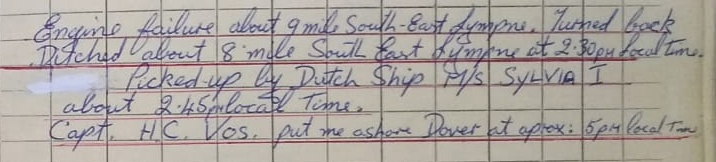 Engine failure about 9 mile South-East Lympne. Turned back
Ditched about 8 mile South East Lympne at 2:30pm local Time.
Picked-up by Dutch Ship M/S SYLVIA I
about 2.45pm local Time.
Capt. H.C. Vos. put me ashore Dover at aprox: 5pm local Time